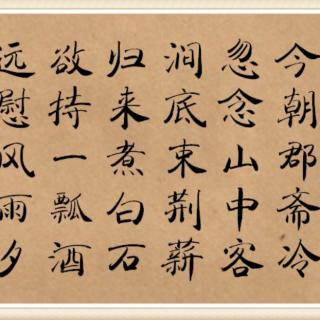 今朝郡斋冷
忽念山中客
涧底束荆薪
归来煮白石
欲持一瓢酒
远慰风雨夕